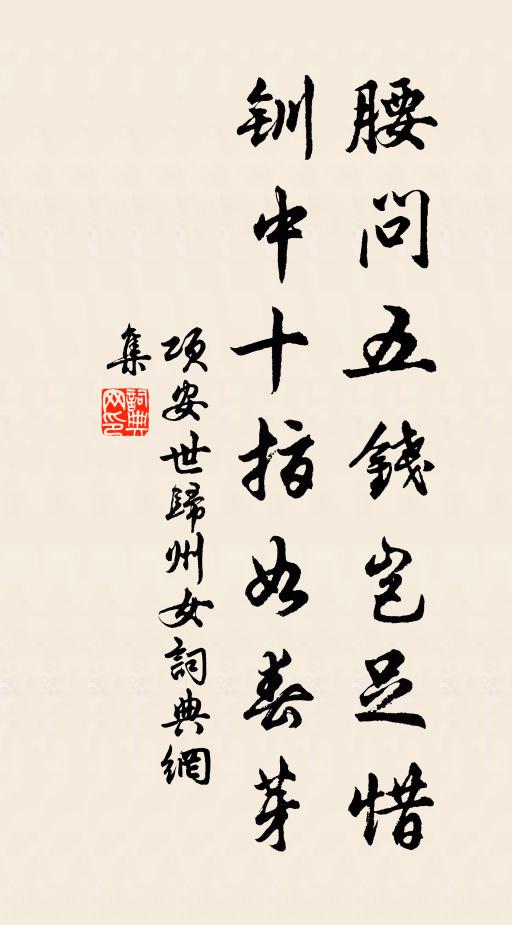 腰問五錢豈足惜
釧中十指如春芽
項安世歸州女詞典網
集
詞典网印